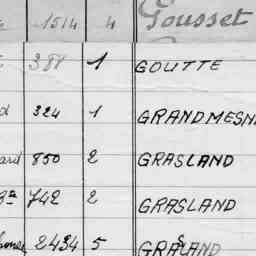 1514 4 Gousset
388 1 GOUTTE
d 324 1 GRANDMESN
ard 850 2 GRASLAND
Bte 742 2 GRASLAND
2434 5 GRASLAND